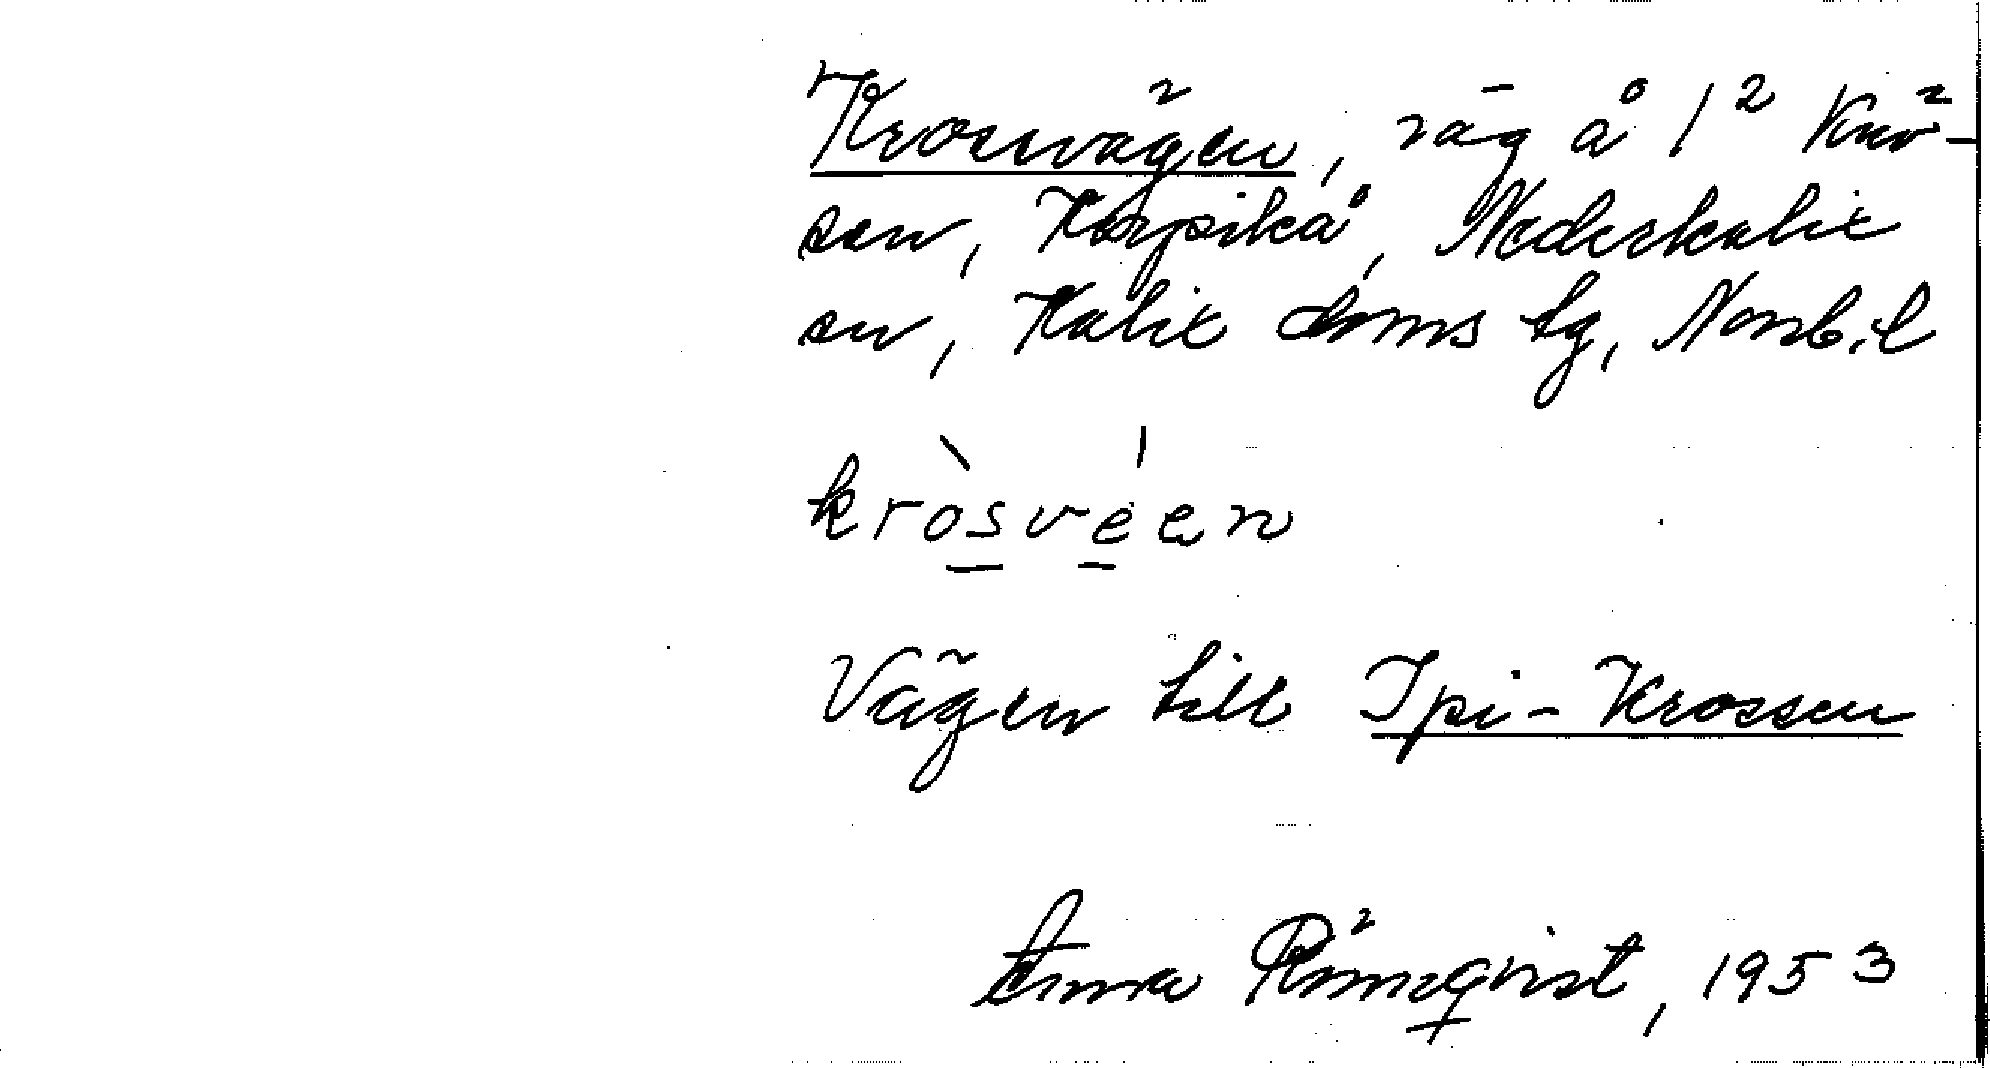 Krossvägen, väg å 1² Krö-
sen, Korpikå, Nederkalix
sn, Kalix doms tg, Norrb. l
kròsvéen
Vägen till Ipi-Krossen
Anna Rönnqvist, 1953